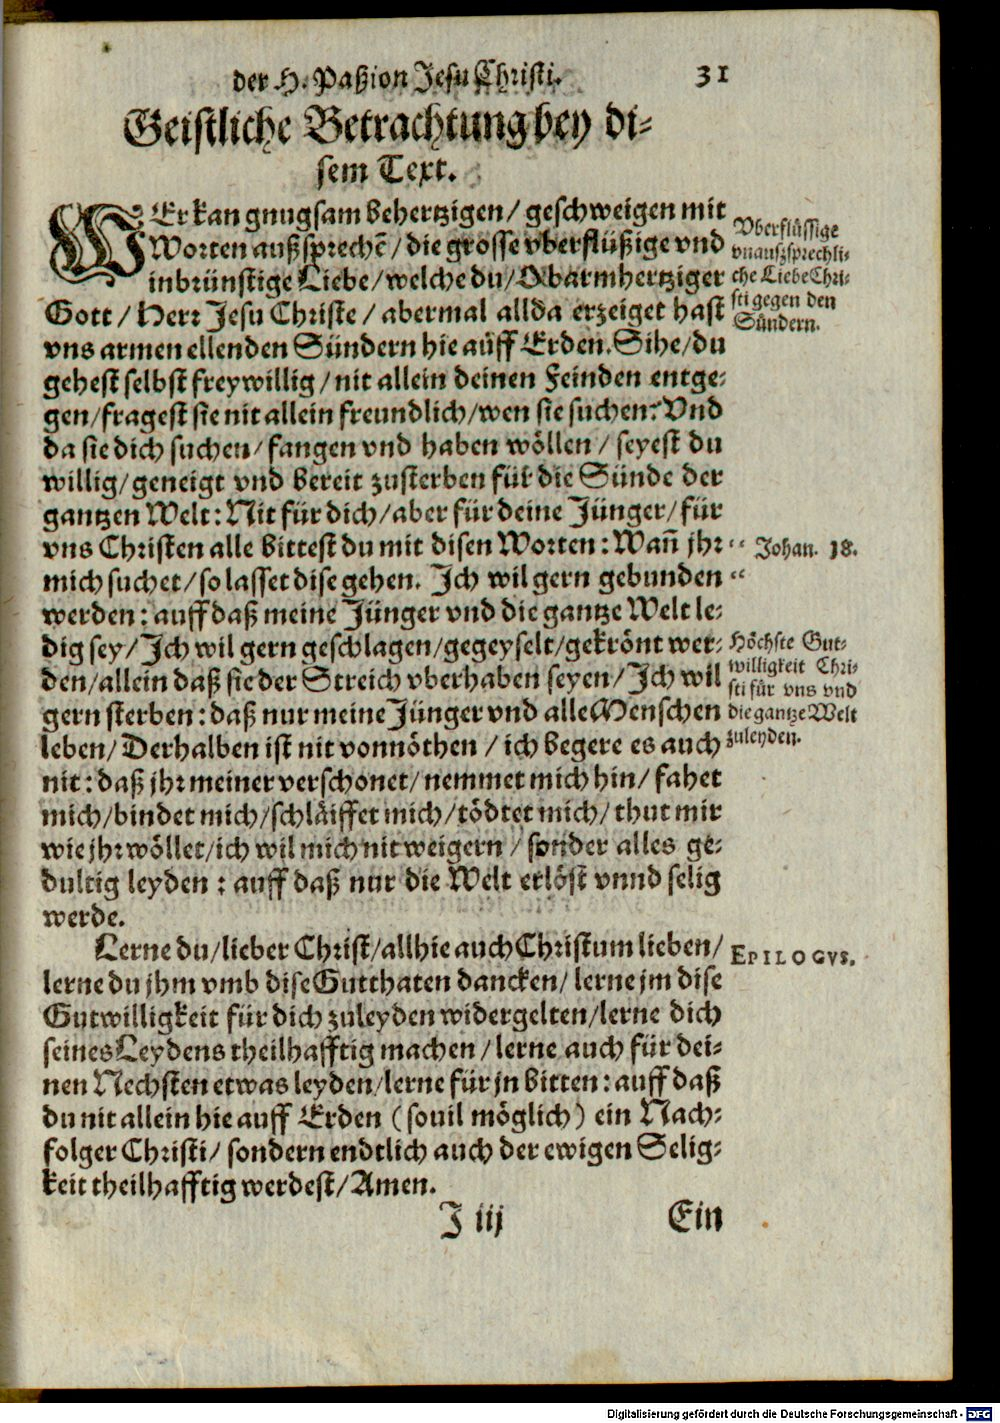 der H. Paßion Jesu Christi. 31
Geistliche Betrachtung bey di⸗
sem Text.
WEr kan gnugsam behertzigen / geschweigen mit
Worten außsprechẽ / die grosse vberflüßige vnd
inbrünstige Liebe / welche du / O barmhertziger
Gott / Herr Jesu Christe / abermal allda erzeiget hast
vns armen ellenden Sündern hie auff Erden. Sihe / du
gehest selbst freywillig / nit allein deinen Feinden entge⸗
gen / fragest sie nit allein freundlich / wen sie suchen? Vnd
da sie dich suchen / fangen vnd haben wöllen / seyest du
willig / geneigt vnd bereit zusterben für die Sünde der
gantzen Welt: Nit für dich / aber für deine Jünger / für
vns Christen alle bittest du mit disen Worten: Wañ jhr
mich suchet / so lasset dise gehen. Ich wil gern gebunden
werden: auff daß meine Jünger vnd die gantze Welt le⸗
dig sey / Ich wil gern geschlagen / gegeyselt / gekrönt wer⸗
den / allein daß sie der Streich vberhaben seyen / Ich wil
gern sterben: daß nur meine Jünger vnd alle Menschen
leben / Derhalben ist nit vonnöthen / ich begere es auch
nit: daß jhr meiner verschonet / nemmet mich hin / fahet
mich / bindet mich / schläiffet mich / tödtet mich / thut mir
wie jhr wöllet / ich wil mich nit weigern / sonder alles ge⸗
dultig leyden: auff daß nur die Welt erlöst vnnd selig
werde.
Lerne du / lieber Christ / allhie auch Christum lieben /
lerne du jhm vmb dise Gutthaten dancken / lerne jm dise
Gutwilligkeit für dich zuleyden widergelten / lerne dich
seines Leydens theilhafftig machen / lerne auch für dei⸗
nen Nechsten etwas leyden / lerne für jn bitten: auff daß
du nit allein hie auff Erden (souil möglich) ein Nach⸗
folger Christi / sondern endtlich auch der ewigen Selig⸗
keit theilhafftig werdest / Amen.
J iij Ein
Vberflüssige
vnaußsprechli⸗
che Liebe Chri⸗
sti gegen den
Sündern.
“ Johan. 18.
“
Höchste Gut⸗
willigkeit Chri⸗
sti für vns vnd
die gantze Welt
zuleyden.
EPILOGVS.
Digitalisierung gefördert durch die Deutsche Forschungsgemeinschaft - DFG